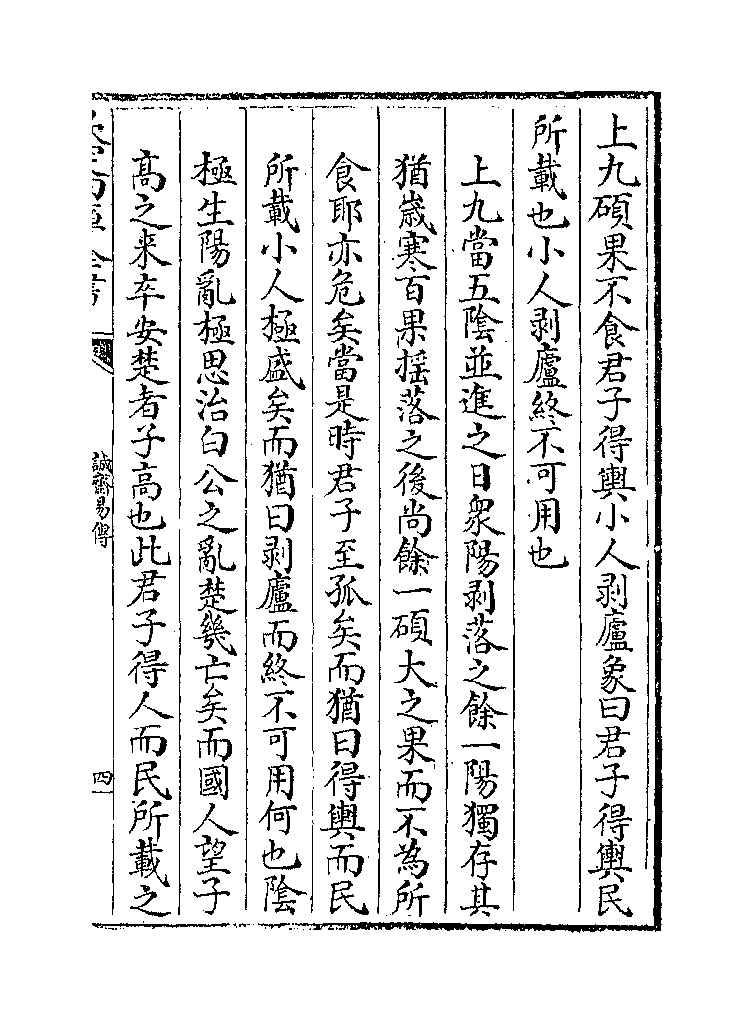 上九碩果不食君子得輿小人剥廬象曰君子得輿民
所載也小人剥廬終不可用也
上九當五陰並進之日衆陽剥落之餘一陽獨存其
猶歳寒百果揺落之後尚餘一碩大之果而不為所
食耶亦危矣當是時君子至孤矣而猶曰得輿而民
所載小人極盛矣而猶曰剥廬而終不可用何也陰
極生陽亂極思治白公之亂楚幾亡矣而國人望子
髙之来卒安楚者子高也此君子得人而民所載之
誠齋易傳
四